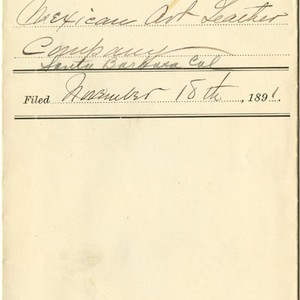 Mexican Art Leather
Company
Santa Barbara Cal
Filed November 18th, 1891.